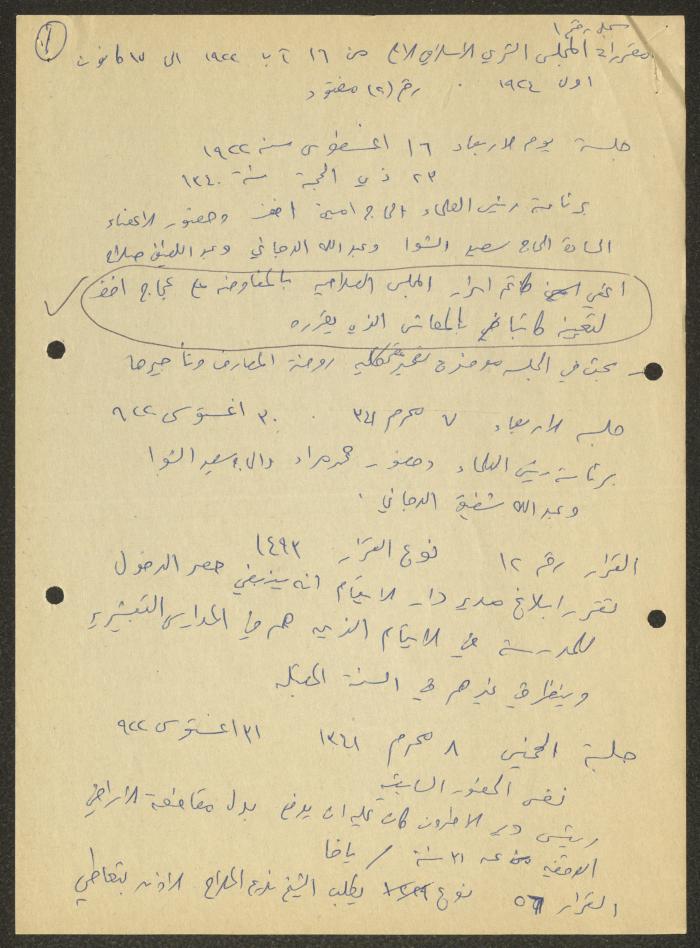 ١
سجل رقم ١
مقررات المجلس الشرعي الاسلامي الاعلى من ١٦ آب ١٩٢٢ الى ١٥ كانون
اول ١٩٢٤ . رقم (٢) مفقود
جلسة يوم الاربعاء ١٦ اغسطوس سنة ١٩٢٢
٢٣ ذي الحجة سنة ١٣٤٠
برئاسة رئيس العلماء الحاج امين افندي وحضور الاعضاء
السادة الحاج سعيد الشوا وعبد الله الدجاني وعبد اللطيف صلاح
كاتم اسرار المجلس بالمفاوضة مع عجاج افندي
لتعيينه كاتبا بالمعاش الذي يقرره
بحث في الجلسة موضوع روضة المعارف وتأجيرها
جلسة الاربعاء ٧ محرم ٣٤١ . ٣٠ اغستوس ٩٢٢
برئاسة رئيس العلماء وحضور محمد مراد والحاج سعيد الشوا
وعبد الله شفيق الدجاني .
القرار رقم ١٢ نوع القرار ١٤٩٣
تقرر ابلاغ مدير دار الايتام انه ينبغي حصر الدخول
للمدرسة في الايتام الذين هم في المدارس التبشيرية
وينظر في غيرهم في السنة المقبلة
جلسة الخميس ٨ محرم ١٣٤١ ٣١ اغستوس ٩٢٢
نفس الحضور السابقين
رئيس دير الاطرون كان عليه ان يدفع بدل مقاطعة الاراضي
الوقفية عن ٣١ سنة / يافا
القرار ٥٦ نوع يطلب الشيخ الملاح الاذن بتعاطي